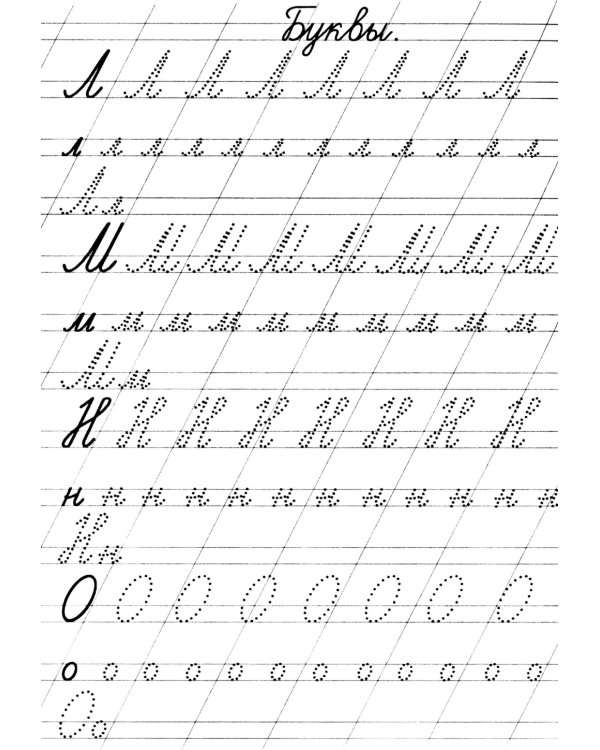 Буквы.
Л Л Л Л Л Л Л Л
л л л л л л л л л л л л
Лл
М М М М М М М М
м м м м м м м м м м
Мм
Н Н Н Н Н Н Н Н
н н н н н н н н н н н н
Нн
О О О О О О О О
о о о о о о о о о о о о
Оо